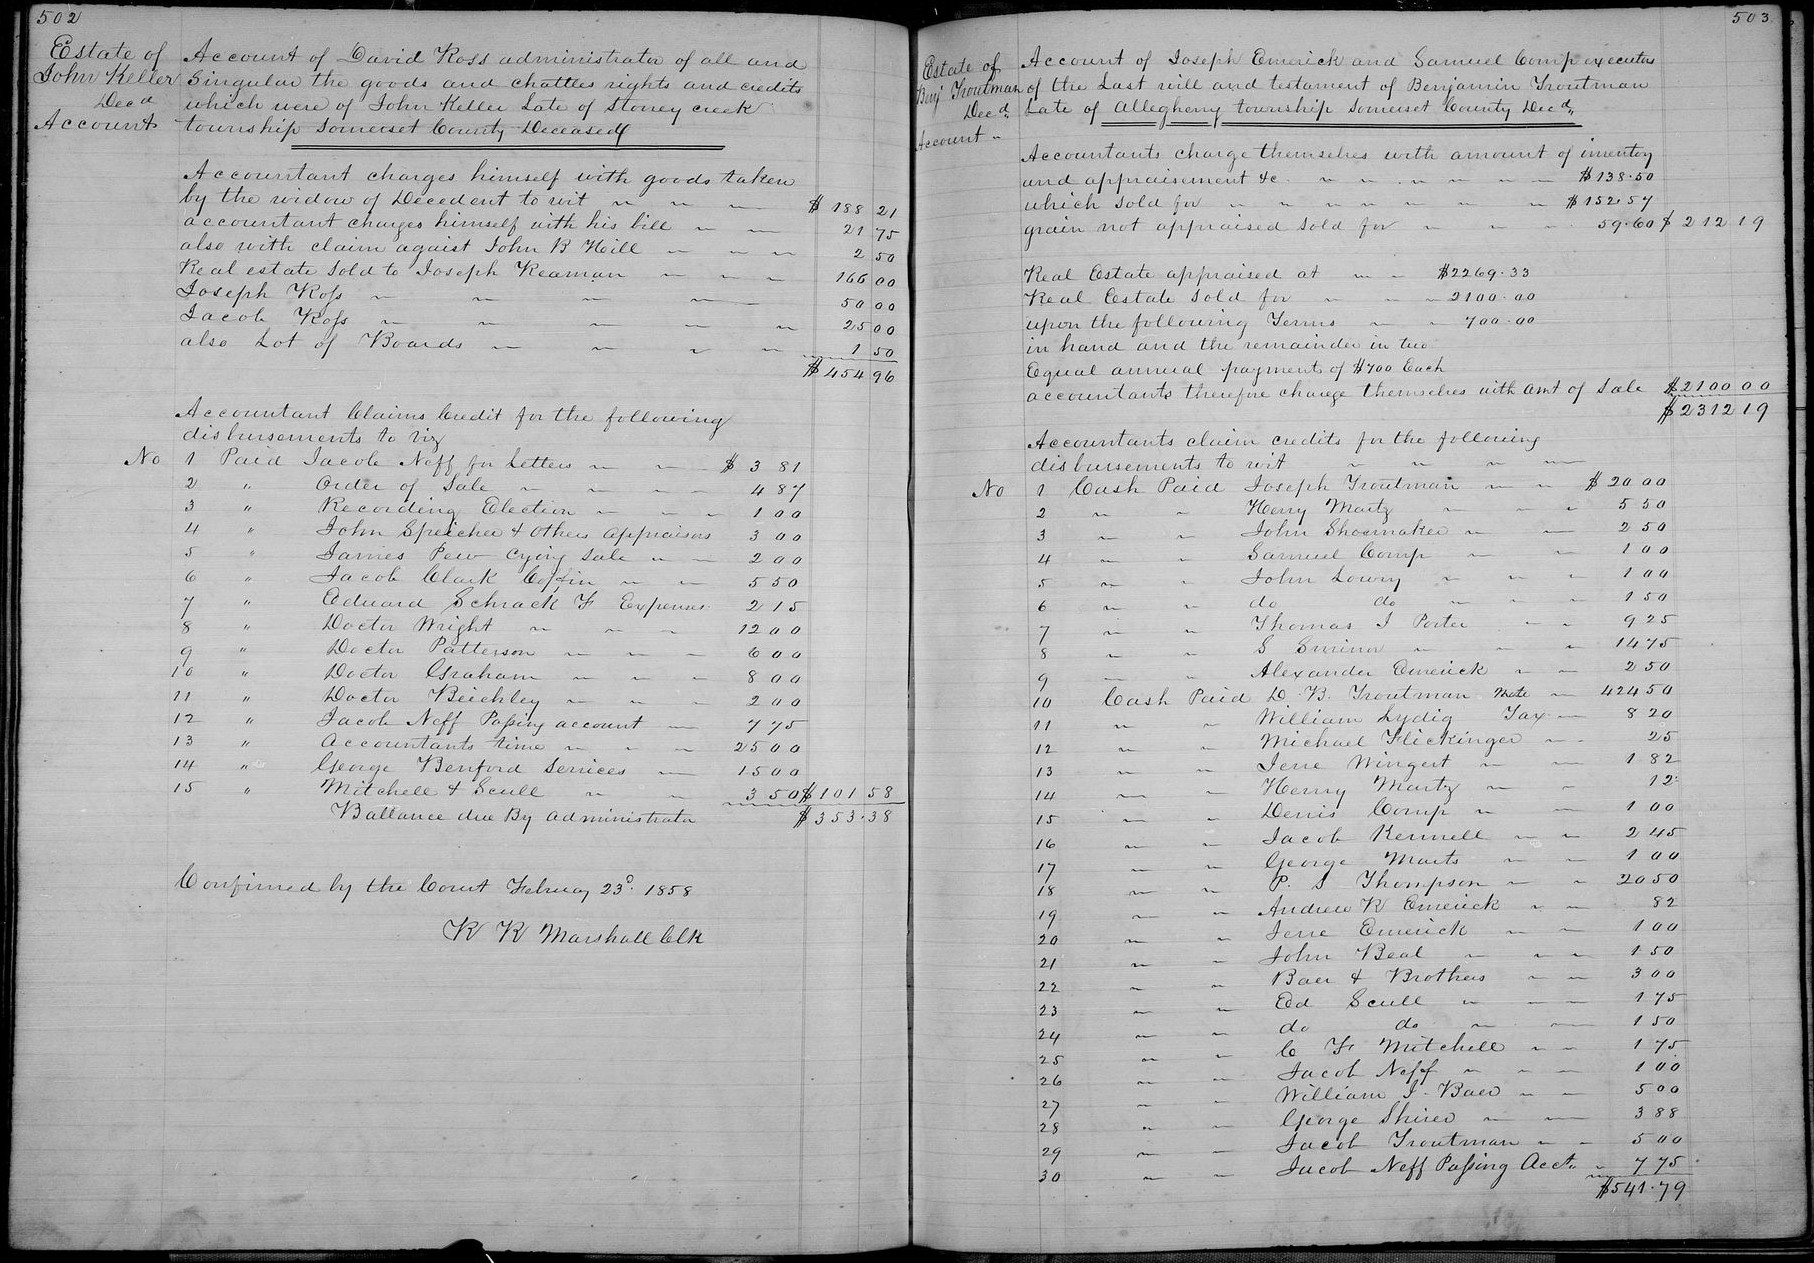 502
Estate of
John Keller
Decd
Account
Account of David Ross administrator of all and
Singular the goods and chattles rights and credits
which were of John Keller Late of Stoney creek
township Somerset County Deceased
Accountant charges himself with goods taken
by the widow of Decedent to wit $ 188 21
accountant charges himself with his bill 21 75
also with claim agaist John B Hill 2 50
Real estate Sold to Joseph Reaman 166 00
Joseph Ross 50 00
Jacob Ross 25 00
also Lot of Boards 1 50
$ 454 96
Accountant Claims Credit for the following
disbursements to viz
No 1 Paid Jacob Neff for Letters $ 3 81
2 " Order of Sale 4 87
3 " Recording Election 1 00
4 " John Speicher & others appraisors 3 00
5 " James Pew Crying Sale 2 00
6 " Jacob Clark Coffin 5 50
7 " Edward Schrack F Expenses 2 15
8 " Doctor Wright 12 00
9 " Doctor Patterson 6 00
10 " Doctor Graham 8 00
11 " Doctor Beichley 2 00
12 " Jacob Neff Passing account 7 75
13 " Accountants time 25 00
14 " George Benford Services 15 00
15 " Mitchell & Scull 3 50 $ 101 58
Ballance due By administrator $ 353.38
Confirmed by the Court February 23d. 1858
K K Marshall Clk
503
Estate of
Benj Troutman
Decd
Account "
Account of Joseph Emerick and Samuel Comp executors
of the Last will and testament of Benjamin Troutman
Late of Allegheny township Somerset County Decd,,
Accountants charge themselves with amount of inventory
and appraisement &c $138.50
which Sold for $152.59
grain not appraised sold for 59.60 $ 212 19
Real Estate appraised at $2269.33
Real Estate Sold for 2100.00
upon the following Terms 700.00
in hand and the remainder in two
Equal annual payments of $700 Each
accountants therefore charge themselves with amt of Sale $2100 00
$2312 19
Accountants claim credits for the following
disbursements to wit
No 1 Cash Paid Joseph Troutman $ 20 00
2 " " Henry Martz 5 50
3 " " John Shoemaker 2 50
4 " " Samuel Comp 1 00
5 " " John Lowry 1 00
6 " " do do 1 50
7 " " Thomas J Porter 9 25
8 " " 14 75
9 " " Alexander Emerick 2 50
10 Cash Paid D. B. Troutman Note 424 50
11 " " William Lydig Tax 8 20
12 " " Michael Flickinger 25
13 " " Jesse Wingert 1 82
14 " " Henry Martz 12
15 " " Denis Comp 1 00
16 " " Jacob Kennell 2 45
17 " " George Marts 1 00
18 " " P. S Thompson 20 50
19 " " Andrew K Emerick 82
20 " " Jesse Emerick 1 00
21 " " John Beal 1 50
22 " " Baer & Brothers 3 00
23 " " Ed Scull 1 75
24 " " do do 1 50
25 " " C F Mitchell 1 75
26 " " Jacob Neff 1 00
27 " " William J. Baer 5 00
28 " " George Shirer 3 88
29 " " Jacob Troutman 5 00
30 " " Jacob Neff Passing Acct,, 7 75
$541.79